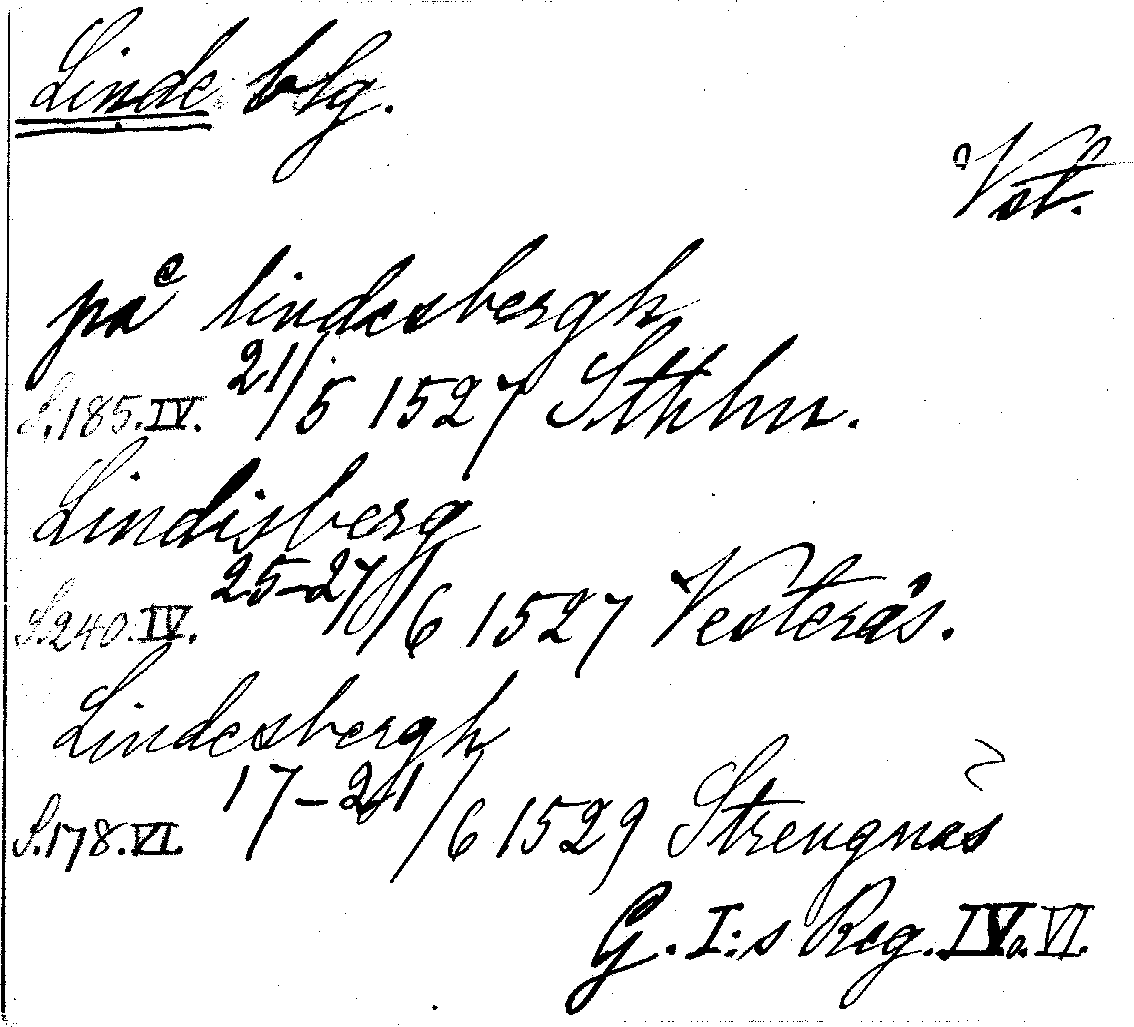 Linde blg.
Vst.
på lindesbergh
S. 185. IV. 21/5 1527 Sthlm.
Lindisberg
S. 240. IV. 25-27/6 1527 Vesterås.
Lindesbergh
S. 178. VI. 17-21/6 1529 Strengnäs
G. I:s Reg. IV. o. VI.